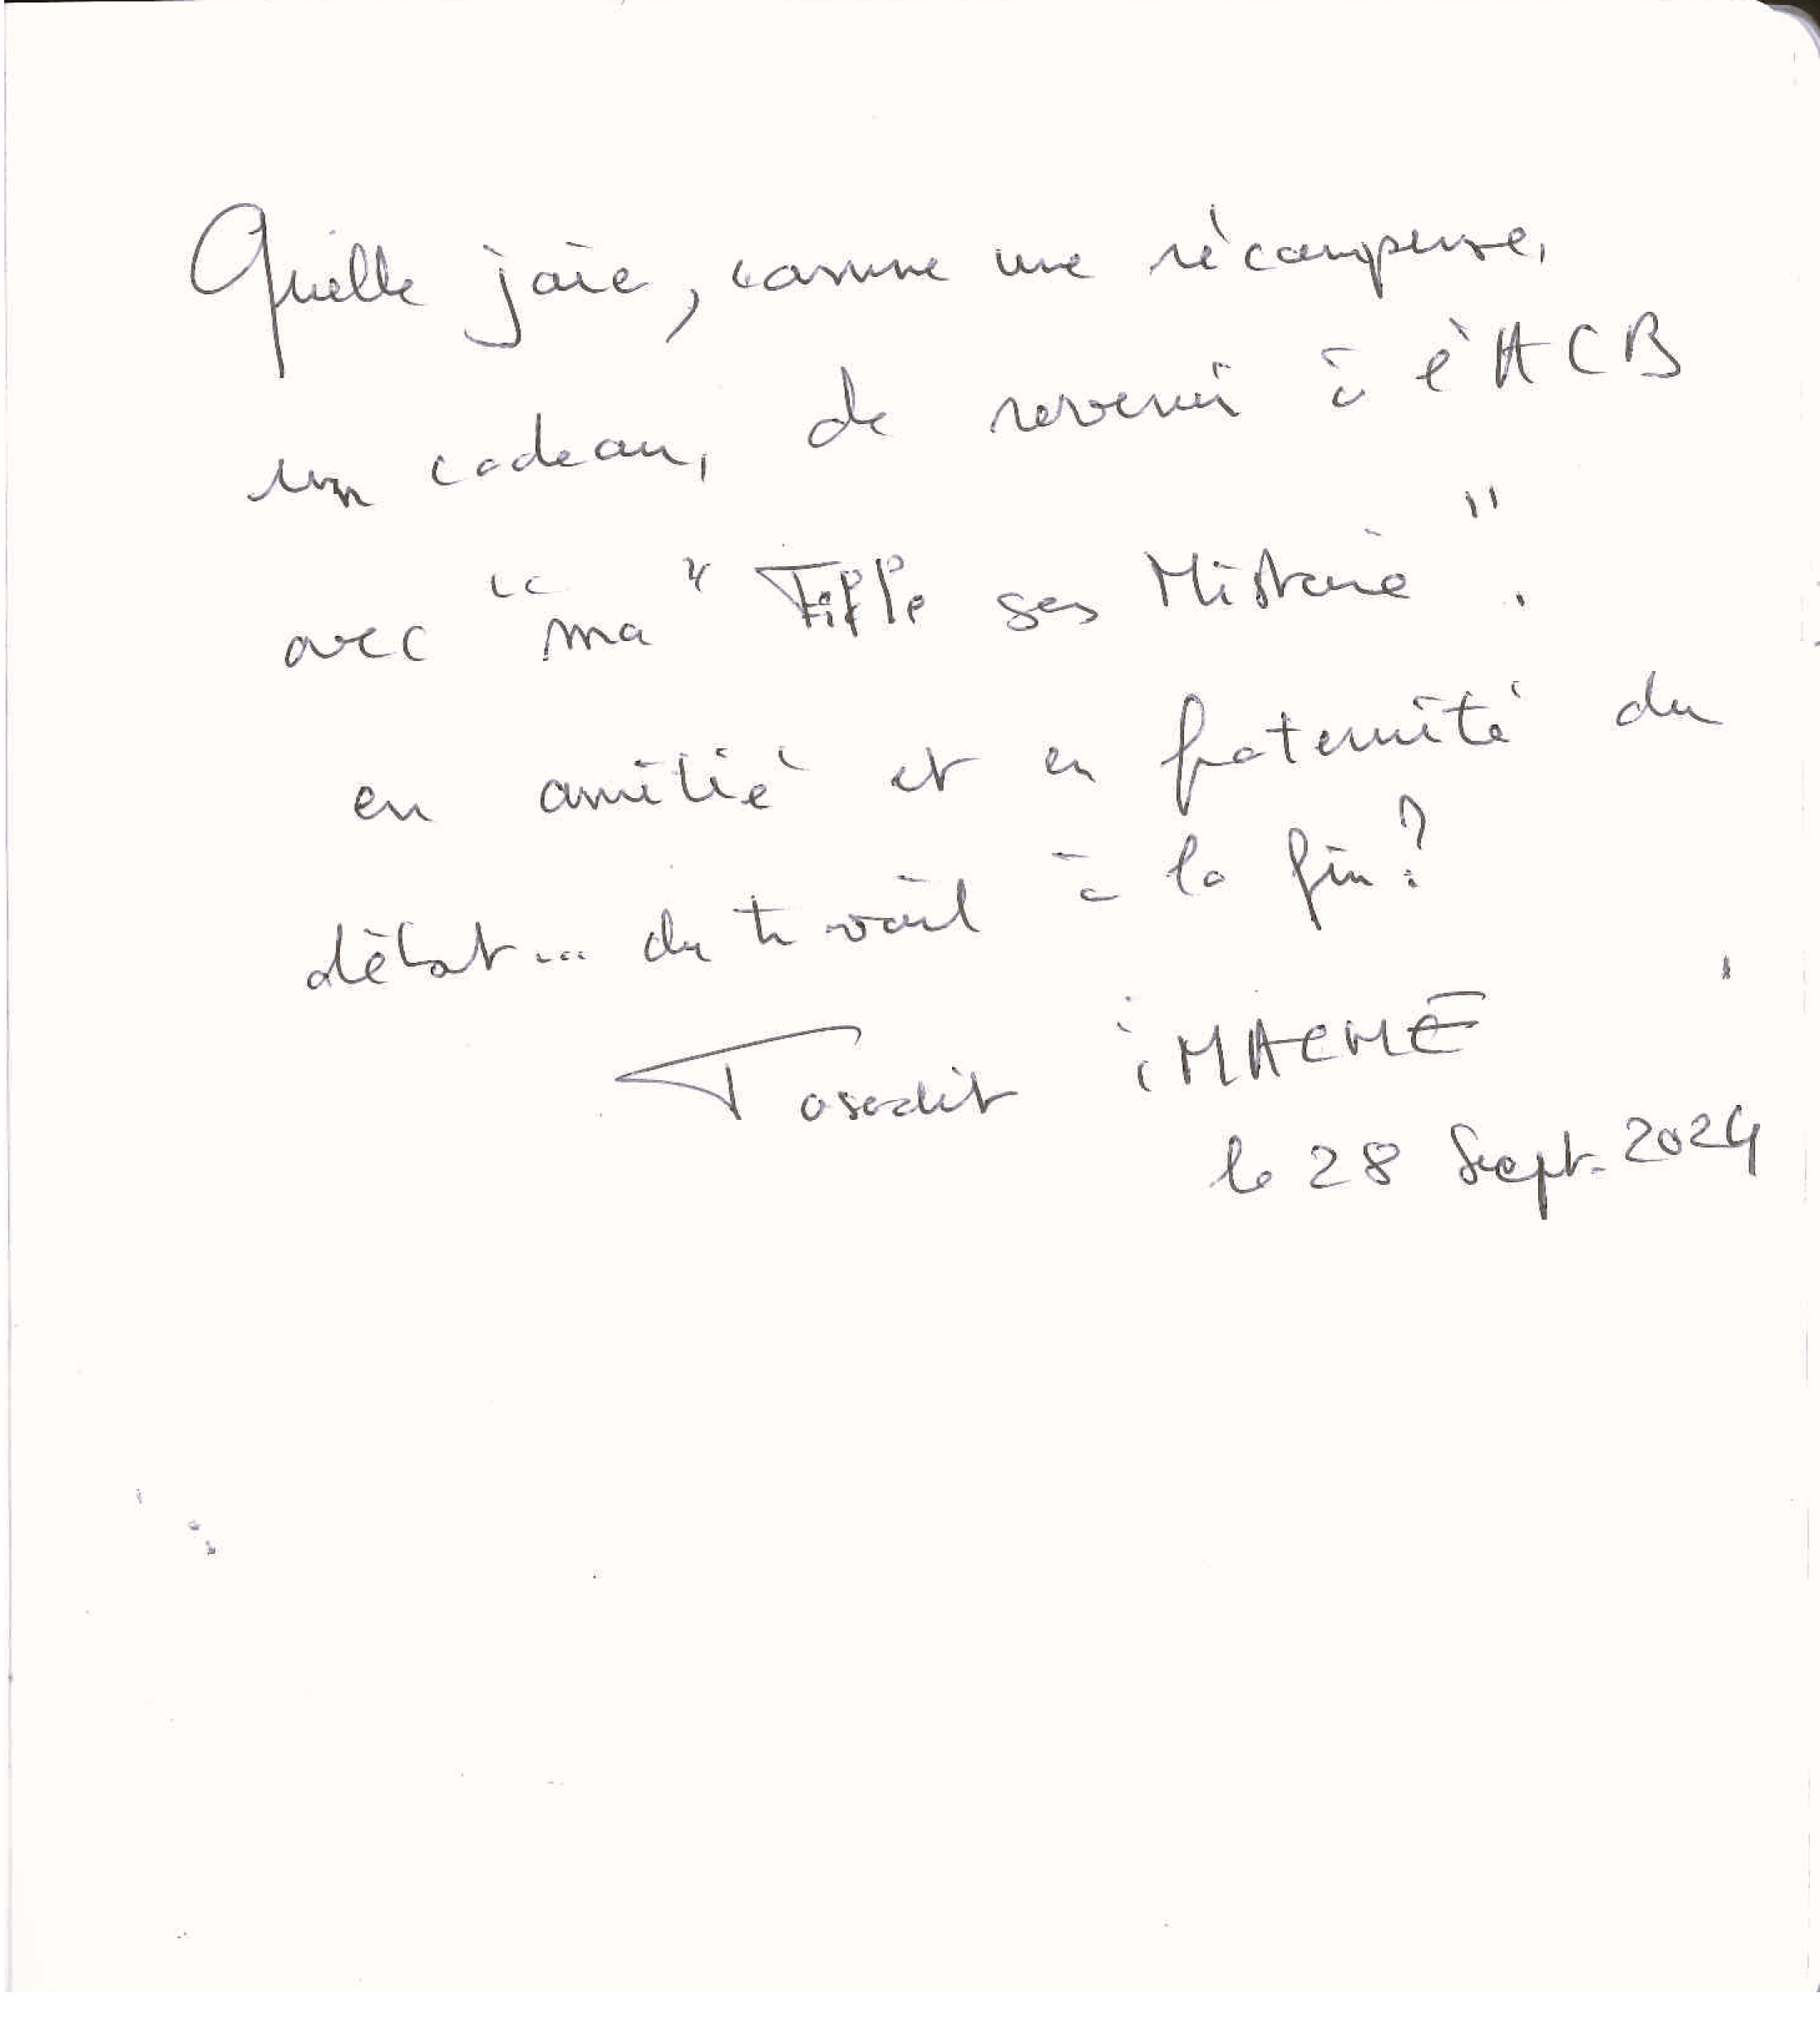 Quelle joie, comme une récompense,
un cadeau, de revenir à l'ACB
avec "ma" Fille ses Histoire".
en amitié et en fraternité du
début... du travail à la fin?
Tassadit iMACHE
le 28 Sept. 2024